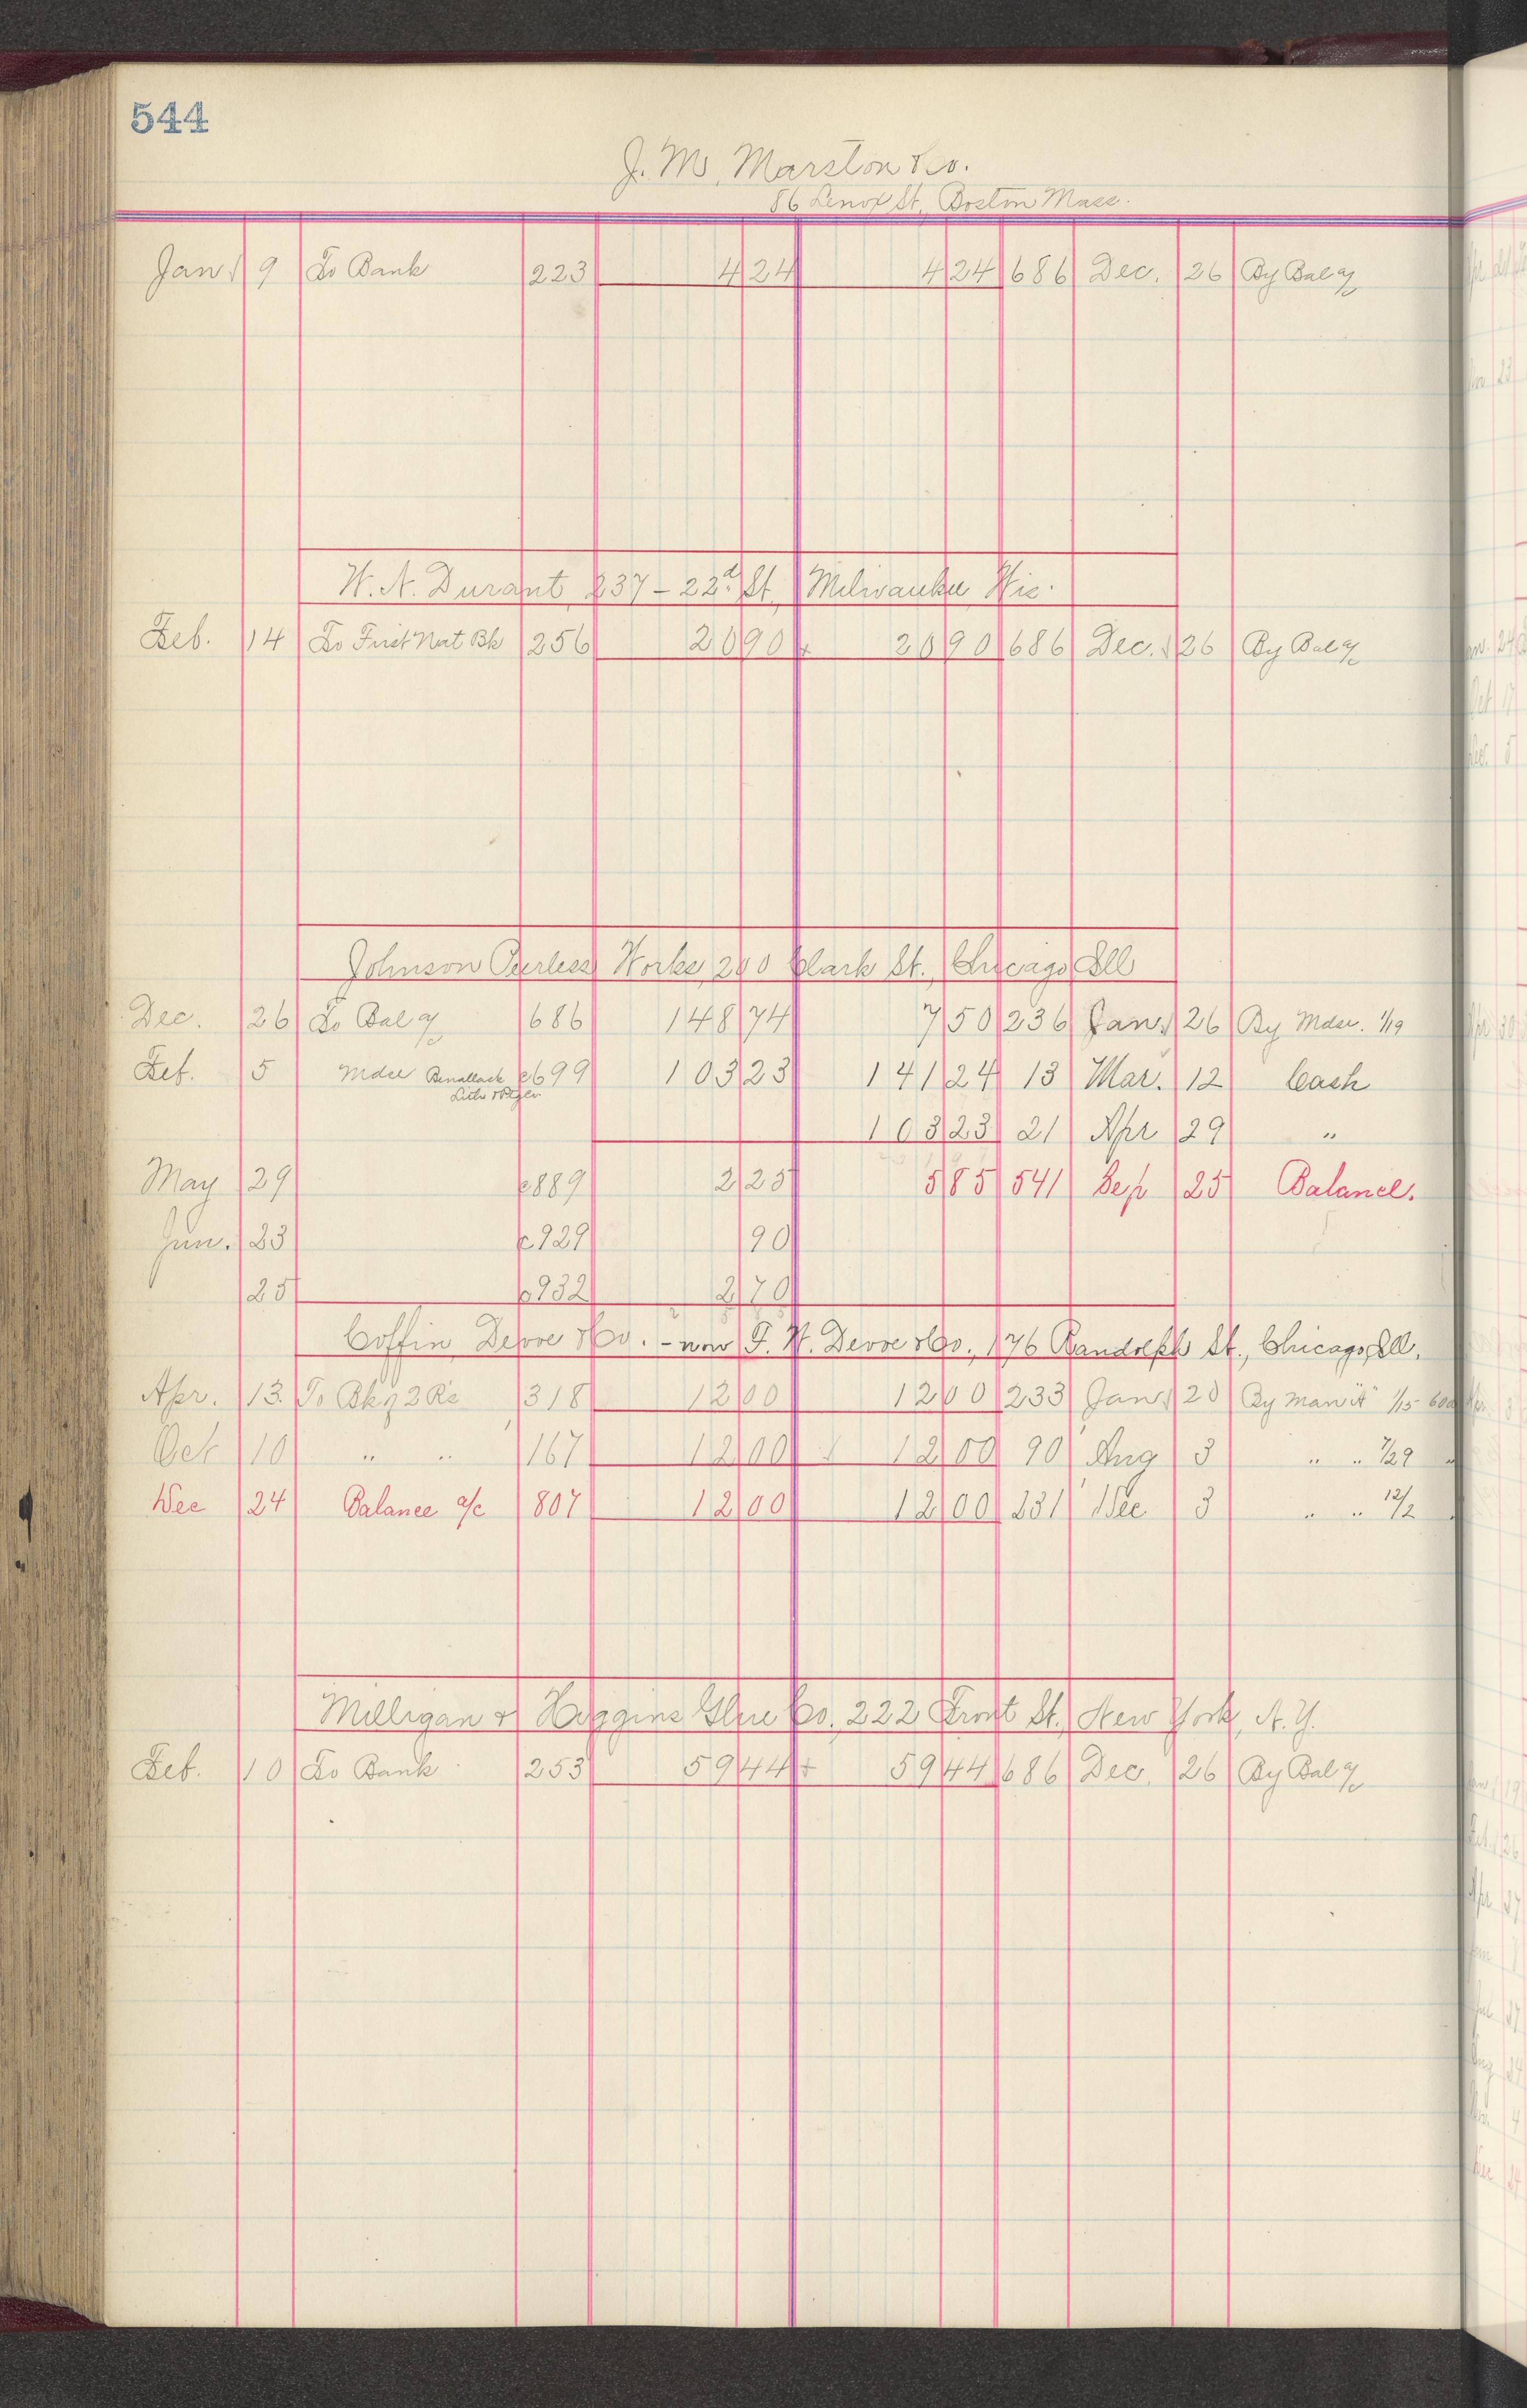 544
J. M. Marston & Co.
86 Lenox St., Boston Mass.
Jan 9 To Bank 223 4 24 4 24 686 Dec. 26 By Bal a/c
W. N. Durant, 237 - 22d St., Milwaukee, Wis.
Feb. 14 To First Nat Bk 256 20 90 20 90 686 Dec. 26 By Bal a/c
Johnson Peerless Works, 200 Clark St., Chicago Ill
Dec. 26 To Bal a/c 686 148 74 7 50 236 Jan 26 By Mdse. 1/19
Feb. 5 Mdse Benallack c699 103 23 141 24 13 Mar. 12 Cash
Litho &
103 23 21 Apr 29 "
May 29 c889 2 25 5 85 541 Sep 25 Balance.
Jun. 23 c929 90
25 c932 2 70
Coffin Devoe & Co. - now F. W. Devoe & Co., 176 Randolph St., Chicago, Ill.
Apr. 13. To Bk a/c 318 12 00 12 00 233 Jan 20 By Man "A" 1/15
Oct 10 " " 167 12 00 12 00 90 Aug 3 " " 7/29 "
Dec 24 Balance a/c 807 12 00 12 00 231 Dec 3 " " 12/2
Milligan & Higgins Glue Co., 222 Front St., New York, N.Y.
Feb. 10 To Bank 253 59 44 59 44 686 Dec. 26 By Bal a/c